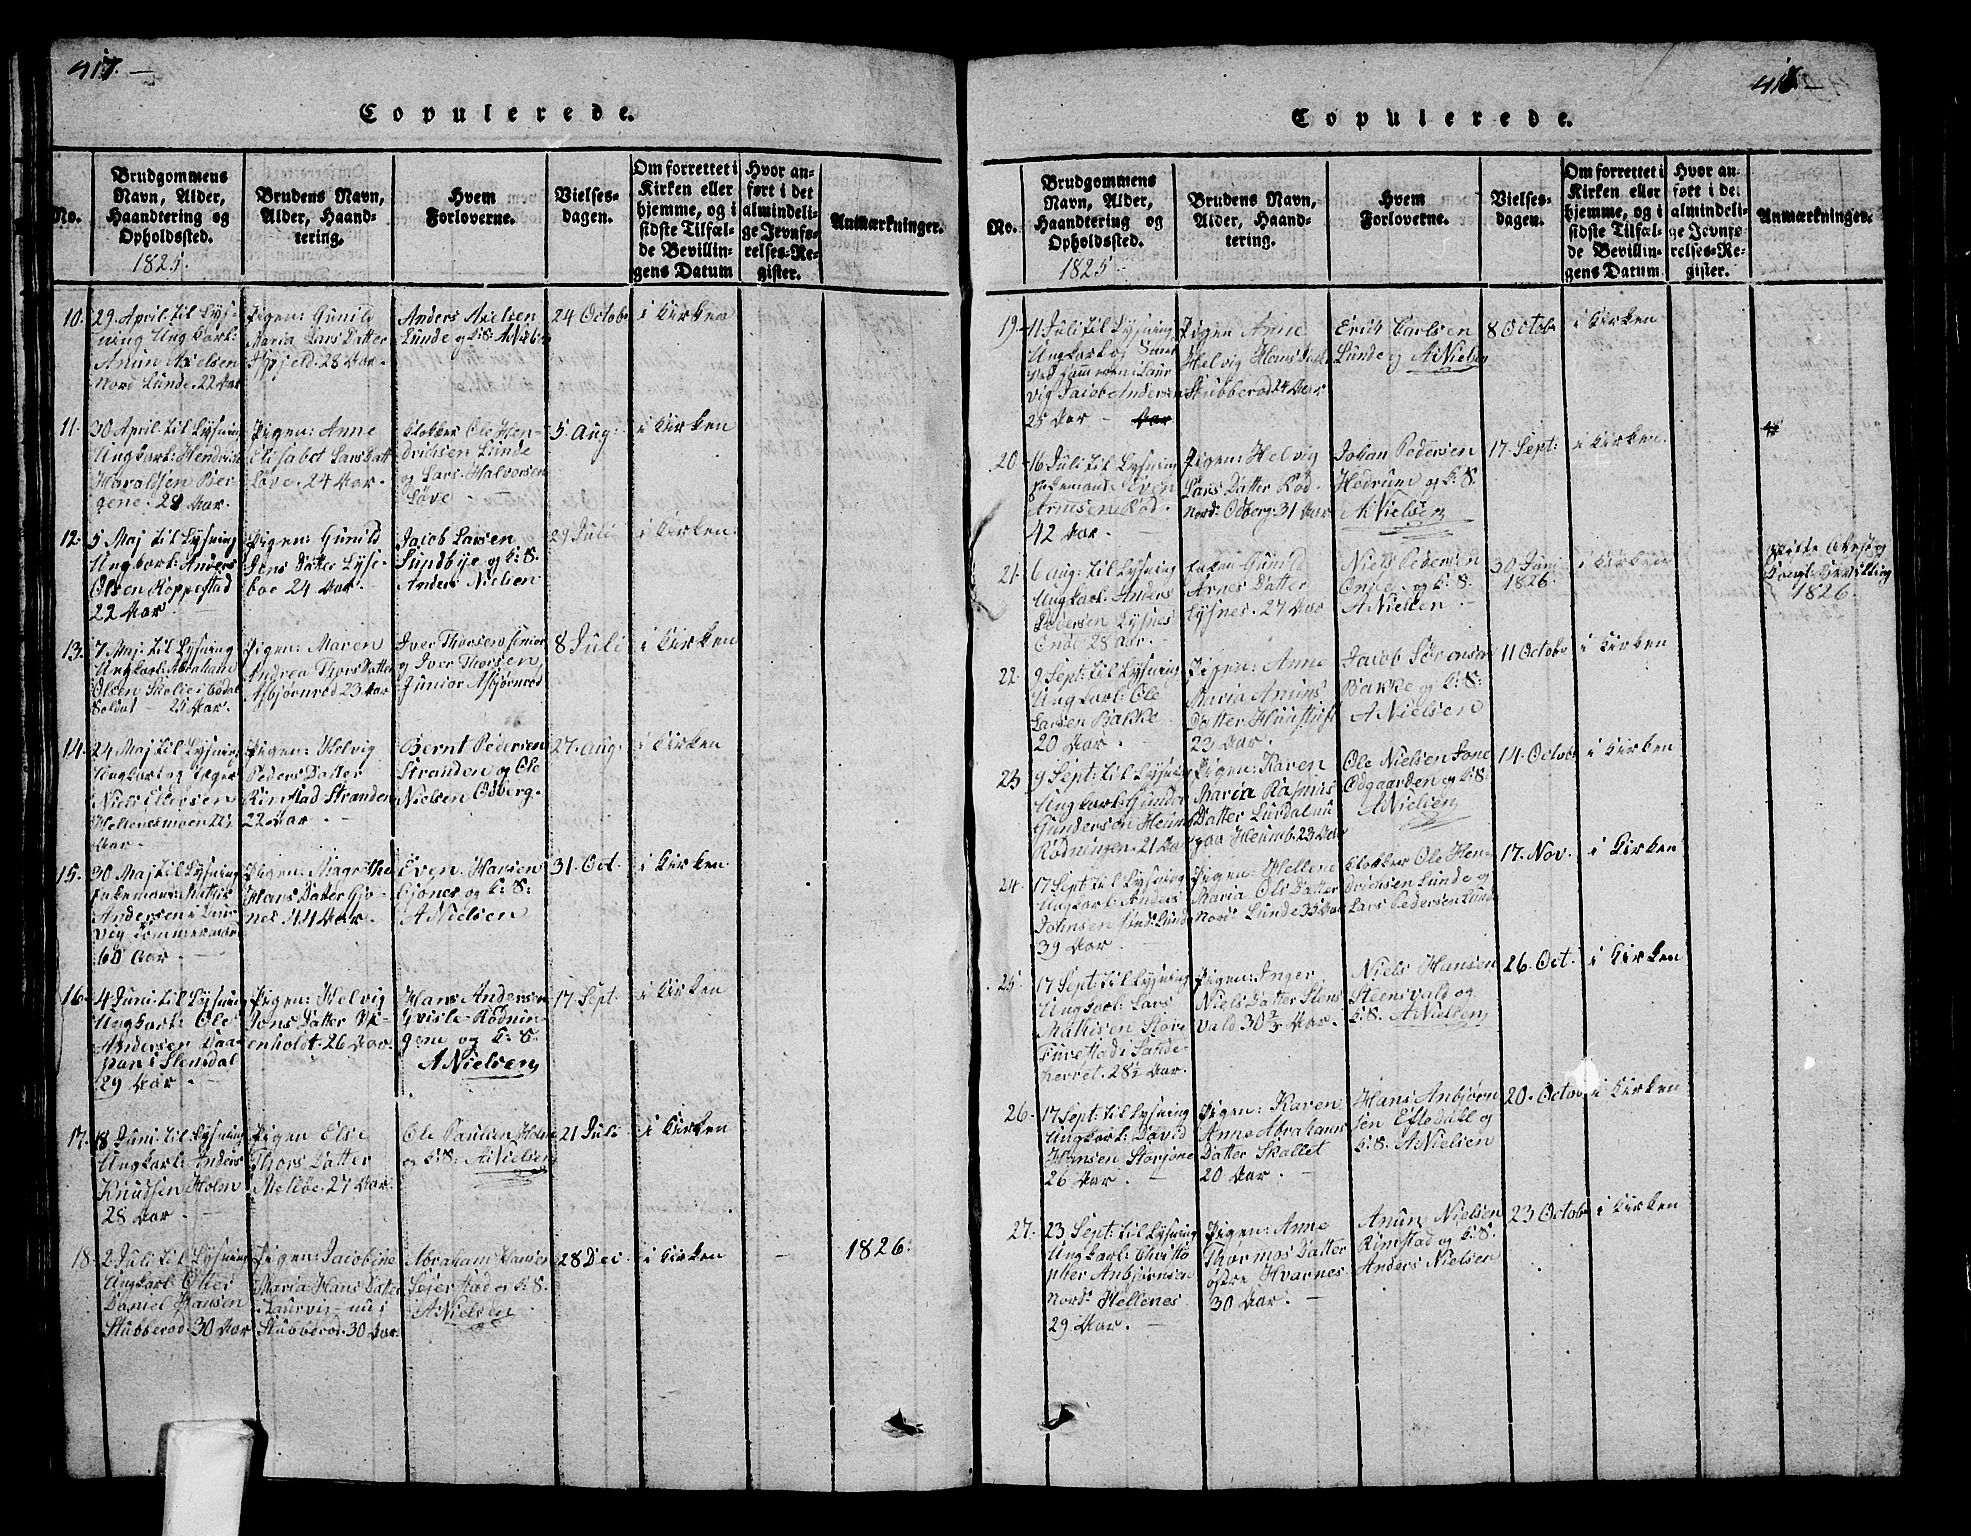 417. —
Copulerede.
No.
Brudgommens
Navn, Alder,
Haandtering og
Opholdssted.
1825.
Brudens Navn,
Alder, Haand-
tering.
Hvem
Forloverne.
Vielses-
dagen.
Om forrettet i
Kirken eller
hjemme, og i
sidste Tilfæl-
de Bevillin-
gens Datum
Hvor an-
ført i det
almindeli-
ge Jevnfø-
relses-Re-
gister.
Anmærkninger.
10.
29 April til Lys-
ning Ungkarl:
Anun Axelsen
Nord Lunde. 22 Aar
Pigen: Gunild
Maria Lars Datter
28 Aar.
Anders Axelsen
Lunde og k:S: A Niels
24 Octobr
i Kirken
11.
30 April til Lysning
Ungkarl: Hendrich
Haraldsen Ber-
gene. 28 Aar.
Pigen: Anne
Elisabet Lars Datt
Løve. 24 Aar.
Klokker Ole Hen-
drichsen Lunde
og Lars Halvorsen
Løve —
5 Aug:
i Kirken
12.
5 Maj til Lysning
Ungkarl: Anders
Olsen Roppestad
22 Aar
Pigen: Gunild
Jens Datter Lyse-
boe 24 Aar
Jacob Larsen
Sundbye og k:S:
Anders Nielsen
29 Juli
i Kirken
13.
7 Maj: til Lysning
Ungkarl Abraham
Olsen
Soldat — 25 Aar.
Pigen: Maren
Andrea Thors Datter
Asbjørnrød 23 Aar
Iver Thorsen senior
og Iver Thorsen
Junior Asbjørnrød
8 Juli
i Kirken
14.
24 Maj til Lysning
Ungkarl og Jæger
Niels
22
Aar.
Pigen: Helvig
Peders Datter
Rimstad Stranden
22 Aar.
Bernt Pedersen
Stranden og Ole
Nielsen Odberg.
27. Aug
i Kirken
15.
30 Maj til Lysning
Enkemand: Mathis
Andersen i Laur
vig Tømmermand
60 Aar —
Pigen: Margrethe
Hans Datter Gjo-
nes 44 Aar.
Even Hansen
Gjones og k:S:
A Nielsen
31 Oct.
i Kirken
16.
4 Juni til Lysning
Ungkarl: Ole
Andersen Daa-
pan i Slemdal
29 Aar —
Pigen: Helvig
Jons Datter Vi-
enholdt. 26 Aar.
Hans Andersen
Qvisle-Rødnin-
gene og k:S:
A Nielsen
17 Sept.
i Kirken
17.
18 Juni til Lysning
Ungkarl: Anders
Knudsen Holm
28 Aar —
Pigen Else
Thors Datter
Meløe. 27 Aar.
Ole Paulsen Holm
og k:S: A Nielsen
21 Juli
i Kirken
18.
2 Juli til Lysning
Ungkarl Otter
Daniel Hansen
Stubberød. 30 Aar
Pigen: Jacobine
Maria Hans Datter
i Laurvig nu i
Stubberød. 30 Aar.
Abraham Hansen
Sejerstad og k:S.
A Nielsen
28 Dec
i Kirken
1826.
418 —
Copulerede.
No.
Brudgommens
Navn, Alder,
Haandtering og
Opholdssted.
1825
Brudens Navn,
Alder, Haand-
tering.
Hvem
Forloverne.
Vielses-
dagen.
Om forrettet i
Kirken eller
hjemme, og i
sidste Tilfæl-
de Bevillin-
gens Datum
Hvor an-
ført i det
almindeli-
ge Jevnfø-
relses-Re-
gister.
Anmærkninger.
19.
11 Juli til Lysning
Ungkarl og
Laur
vig Jacob Andersen
25 Aar —
Pigen Anne
Helvig Hans Datt
Stubberød 24 Aar
Erich Carlsen
Lunde og A Nielsen
8 Octobr
i Kirken
20.
16 Juli til Lysning
Enkemand: Even
Arnesen Rød.
42 Aar.
Pigen: Helvig
Lars Datter Rød
nord. Odberg. 31 Aar
Johan Pedersen
Hedrum og k:S:
A Nielsen
17 Sept:
i Kirken
21.
6 Aug: til Lysning
Ungkarl: Anders
Pedersen Lysnes
28 Aar. —
Enke Gunild
Arnes Datter
Lysnes. 27 Aar
Niels Pedersen
og k:S:
A Nielsen —
30 Juni
1826
i Kirken
Kongl: Bevilling
1826.
22.
9 Sept: til Lysning
Ungkarl: Ole
Larsen Bakke
20 Aar.
Pigen: Anne
Maria Anuns
Datter
23 Aar.
Jacob Sørensen
Bakke og k:S:
A Nielsen
11 Octobr
i Kirken
23
9 Sept: til Lysning
Ungkarl: Gunder
Gundersen Heum
Rødningen. 21 Aar
Pigen: Karen
Maria Rasmus
Datter Lurdal nu
paa Heumb. 23 Aar
Ole Nielsen
Odgaarden og k:S:
A Nielsen
14. Octobr
i Kirken
24.
17 Sept til Lysning
Ungkarl: Anders
Johnsen Sønd: Lunde
39 Aar. —
Pigen: Hellene
Maria Ols Datter
Nord Lunde 33 Aar
Klokker Ole Hen-
drichsen Lunde og
Lars Pedersen Lunde
17. Nov.
i Kirken
25.
17 Sept: til Lysning
Ungkarl: Lars
Mathisen Store
Furestad i Sande-
herret. 28½ Aar.
Pigen: Inger
Niels Datter Stens
vald 30⅔ Aar.
Niels Hansen
Steensvald og
k:S: A Nielsen
26. Oct.
i Kirken
26.
17 Sept: til Lysning
Ungkarl: David
Hansen Storjone
26 Aar. —
Pigen: Karen
Anne Abrahams
Datter Skallet
20 Aar.
Hans Anbjørn
sen Eftedahl og
k:S: A Nielsen
20. Octobr
i Kirken
27.
23 Sept: til Lysning
Ungkarl: Christo
pher Anbjørnsen
Nord. Hellenes
29 Aar. —
Pigen: Anne
Thormos Datter
østre Hvarnes
30 Aar. —
Anun Nielsen
Rimstad og k:S.
Anders Nielsen
23 Octobr
i Kirken